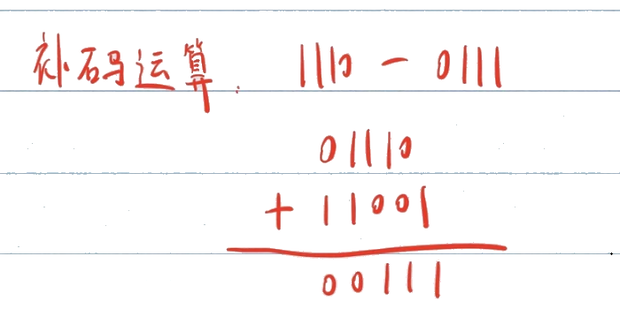 补码运算: 1110 - 0111
01110
+ 11001
00111